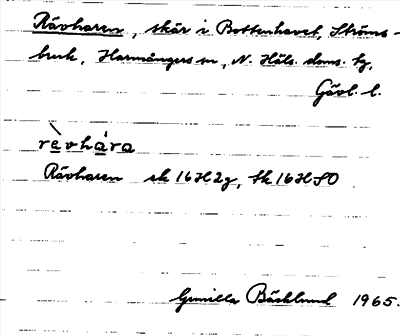 Rävharen, skär i Bottenhavet, Ströms-
bruk, Harmångers sn, N. Häls. doms. tg,
Gävl. l.
rèvhára
Rävharen ek 16H2g, sk 16H SO
Gunilla Bäcklund 1965.